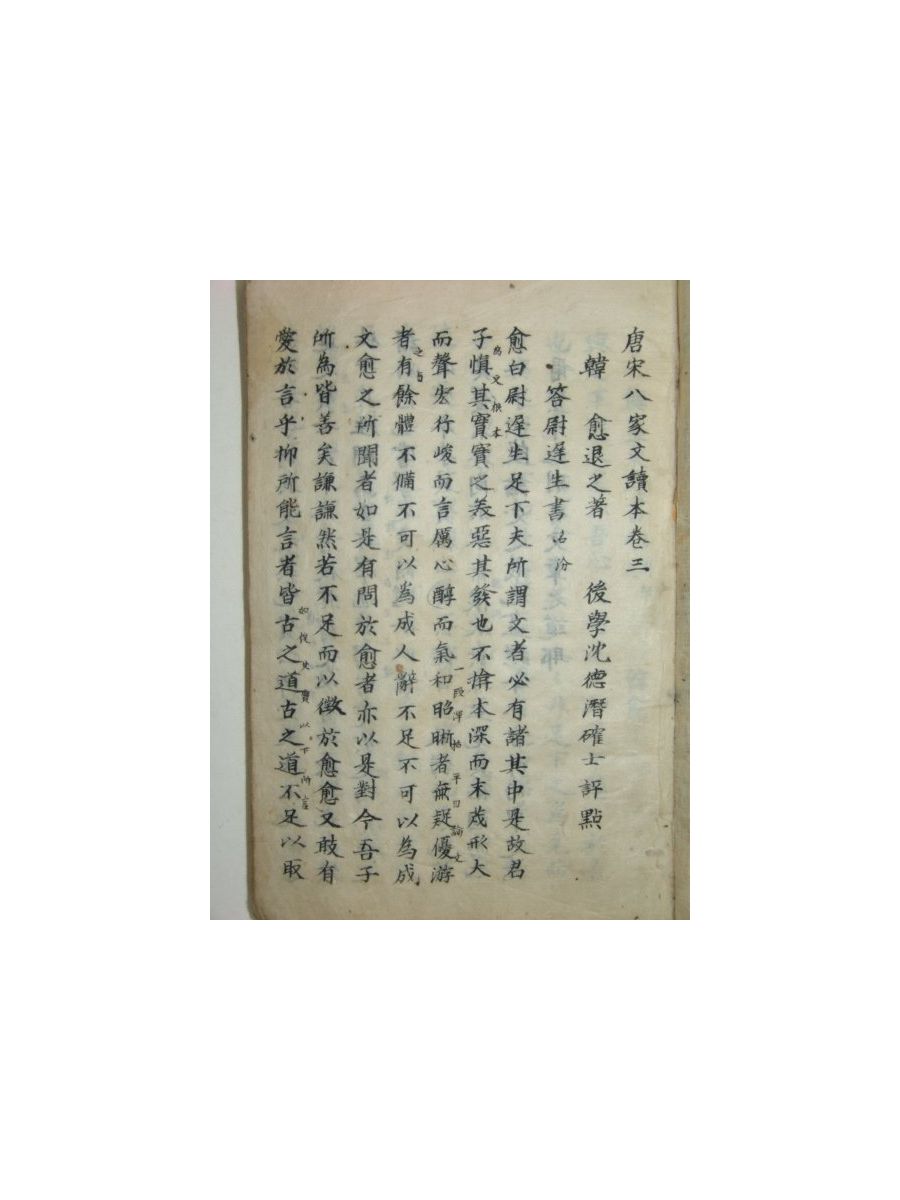 唐宋八家文讀本卷三
韓愈退之著 後學沈德潛確士評點
答尉遲生書 名汾
愈白尉遲生足下夫所謂文者必有諸其中是故君
子慎其實實之美惡其發也不揜本深而末茂形大
為文根本
而聲宏行峻而言厲心醇而氣和昭晰者無疑優游
一段渾括平日論文
者有餘體不備不可以為成人辭不足不可以為成
之旨
文愈之所聞者如是有問於愈者亦以是對今吾子
所為皆善矣謙謙然若不足而以徵於愈愈又敢有
愛於言乎抑所能言者皆古之道古之道不足以取
以下所言